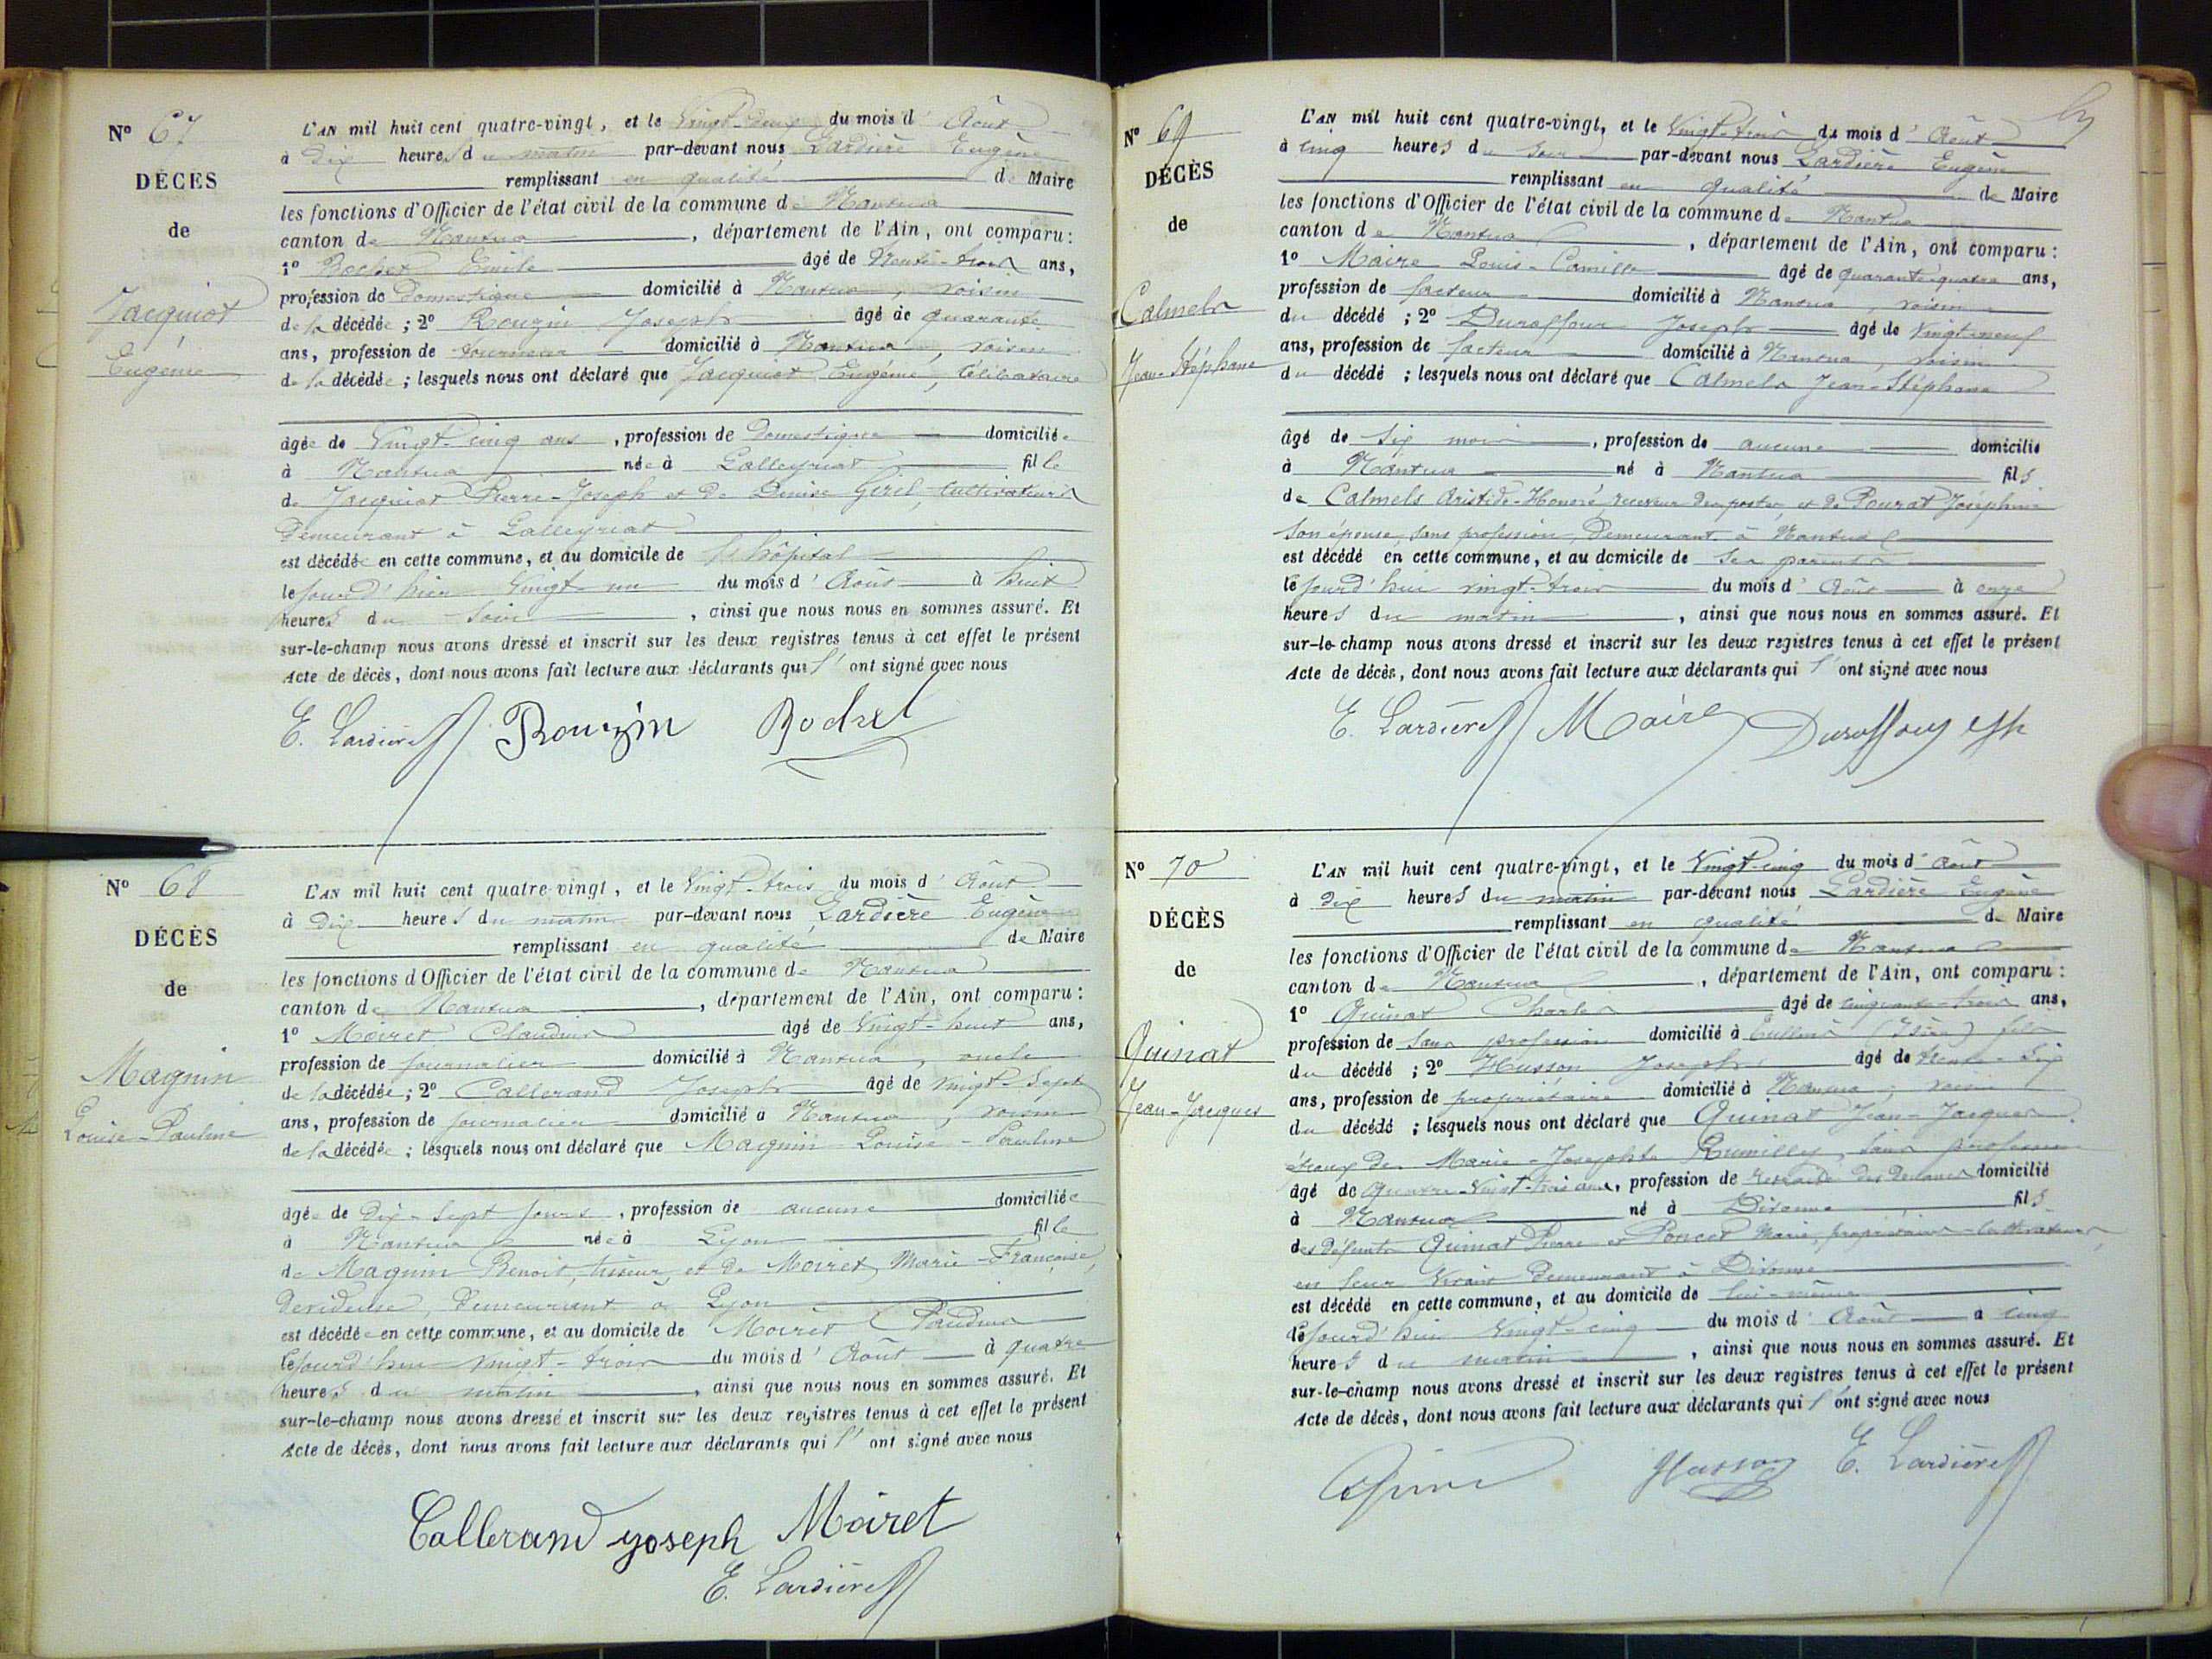 N° 67
DÉCES
de
Jacquiot
Eugénie
L'AN mil huit cent quatre-vingt, et le Vingt-deux du mois d'Août
à Dix heures du matin par-devant nous Lardière Eugène
remplissant en qualité de Maire
les fonctions d'Officier de l'état civil de la commune de Nantua
canton de Nantua, département de l'Ain, ont comparu:
1° Bochet Emile âgé de trente-trois ans,
profession de Domestique domicilié à Nantua, voisin
de la décédée; 2° Rouzin Joseph âgé de quarante
ans, profession de tourneur domicilié à Nantua, voisin
de la décédée; lesquels nous ont déclaré que Jacquiot Eugénie, Célibataire
âgée de Vingt-cinq ans, profession de Domestique domiciliée
à Nantua née à Lalleyriat fille
de Jacquiot Pierre-Joseph et de Denise Girel, Cultivateurs
demeurant à Lalleyriat
est décédée en cette commune, et au domicile de l'hôpital
le jourd'hier Vingt-un du mois d'Août à huit
heures du soir, ainsi que nous nous en sommes assuré. Et
sur-le-champ nous avons dressé et inscrit sur les deux registres tenus à cet effet le présent
Acte de décès, dont nous avons fait lecture aux déclarants qui l'ont signé avec nous
E. Lardière Rouzin Bochet
N° 68
DÉCÈS
de
Magnin
Louise-Pauline
L'AN mil huit cent quatre-vingt, et le Vingt-trois du mois d'Août
à Dix heures du matin par-devant nous Lardière Eugène
remplissant en qualité de Maire
les fonctions d'Officier de l'état civil de la commune de Nantua
canton de Nantua, département de l'Ain, ont comparu:
1° Moiret Claudius âgé de Vingt-huit ans,
profession de journalier domicilié à Nantua, oncle
de la décédée; 2° Callerand Joseph âgé de Vingt-Sept
ans, profession de journalier domicilié à Nantua, voisin
de la décédée; lesquels nous ont déclaré que Magnin Louise-Pauline
âgée de Dix-Sept jours, profession de aucune domiciliée
à Nantua née à Lyon fille
de Magnin Benoit, tisseur, et de Moiret Marie-Françoise,
Devideuse, demeurant à Lyon
est décédée en cette commune, et au domicile de Moiret Claudius
le jourd'hui Vingt-trois du mois d'Août à quatre
heures du matin, ainsi que nous nous en sommes assuré. Et
sur-le-champ nous avons dressé et inscrit sur les deux registres tenus à cet effet le présent
Acte de décès, dont nous avons fait lecture aux déclarants qui l'ont signé avec nous
Callerand joseph Moiret
E. Lardière
N° 69
DÉCÈS
de
Calmels
Jean-Stéphane
L'AN mil huit cent quatre-vingt, et le Vingt-trois du mois d'Août
à cinq heures du soir par-devant nous Lardière Eugène
remplissant en qualité de Maire
les fonctions d'Officier de l'état civil de la commune de Nantua
canton de Nantua, département de l'Ain, ont comparu:
1° Maire Louis-Camille âgé de quarante-quatre ans,
profession de facteur domicilié à Nantua, voisin
du décédé; 2° Duraffour Joseph âgé de Vingt-neuf
ans, profession de facteur domicilié à Nantua, voisin
du décédé; lesquels nous ont déclaré que Calmels Jean-Stéphane
âgé de Six mois, profession de aucune domicilié
à Nantua né à Nantua fils
de Calmels Aristide-Honoré, receveur des postes, et de Pourat Joséphine
son épouse, sans profession, Demeurant à Nantua
est décédé en cette commune, et au domicile de ses parents
le jourd'hui vingt-trois du mois d'Août à onze
heures du matin, ainsi que nous nous en sommes assuré. Et
sur-le-champ nous avons dressé et inscrit sur les deux registres tenus à cet effet le présent
Acte de décès, dont nous avons fait lecture aux déclarants qui l'ont signé avec nous
E. Lardière Maire Duraffour Jph
N° 70
DÉCÈS
de
Quinat
Jean-Jacques
L'AN mil huit cent quatre-vingt, et le Vingt-cinq du mois d'Août
à dix heures du matin par-devant nous Lardière Eugène
remplissant en qualité de Maire
les fonctions d'Officier de l'état civil de la commune de Nantua
canton de Nantua, département de l'Ain, ont comparu:
1° Quinat Charles âgé de cinquante-trois ans,
profession de Sans profession domicilié à (Isère) fils
du décédé; 2° Husson Joseph âgé de trente-Six
ans, profession de propriétaire domicilié à Nantua, voisin
du décédé; lesquels nous ont déclaré que Quinat Jean-Jacques
époux de Marie-Josephte Rumilly, sans profession
âgé de Quatre-Vingt-trois ans, profession de retraité des Douanes domicilié
à Nantua né à Divonne fils
des défunts Quinat Pierre et Poncet Marie, propriétaires-Cultivateurs,
en leur Vivant demeurant à Divonne
est décédé en cette commune, et au domicile de lui-même
le jourd'hui Vingt-cinq du mois d'Août à cinq
heures du matin, ainsi que nous nous en sommes assuré. Et
sur-le-champ nous avons dressé et inscrit sur les deux registres tenus à cet effet le présent
Acte de décès, dont nous avons fait lecture aux déclarants qui l'ont signé avec nous
Husson E. Lardière